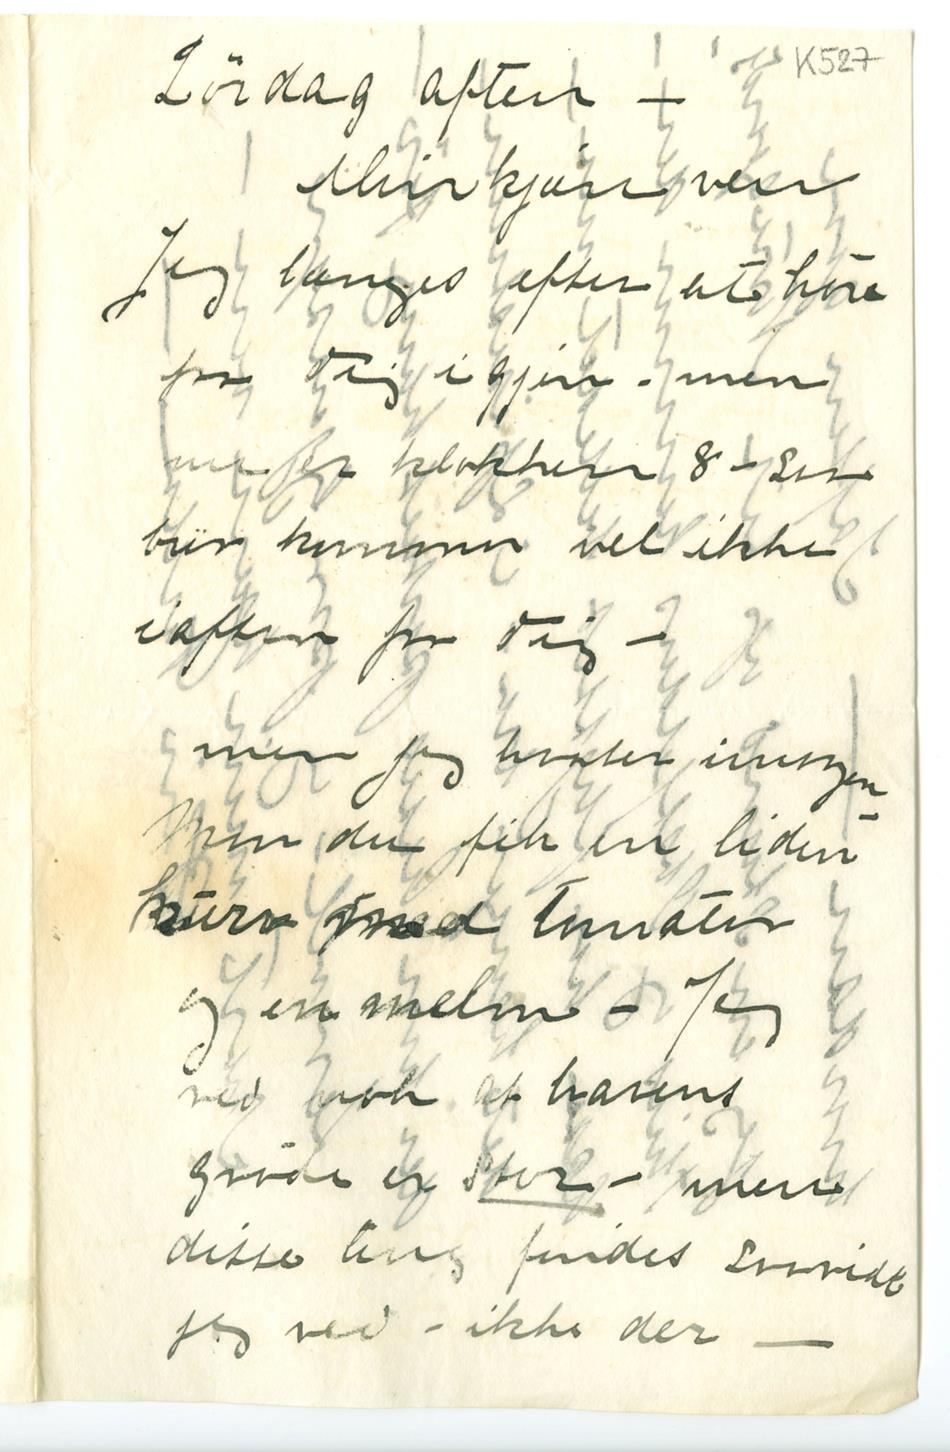 K527
Lördag aften –
Min kjære ven
Jeg længes efter at høre
fra Dig igjen - men
nu er klokken 8 – Snn
bür kommer vel ikke
iaften fra Dig –
men jeg venter imorgen
Men du fik en liden
kurv med tomater
og en melon – Jeg
ved nok at havens
gröde er stor – men
disse ting findes saavidt
jeg ved – ikke der —